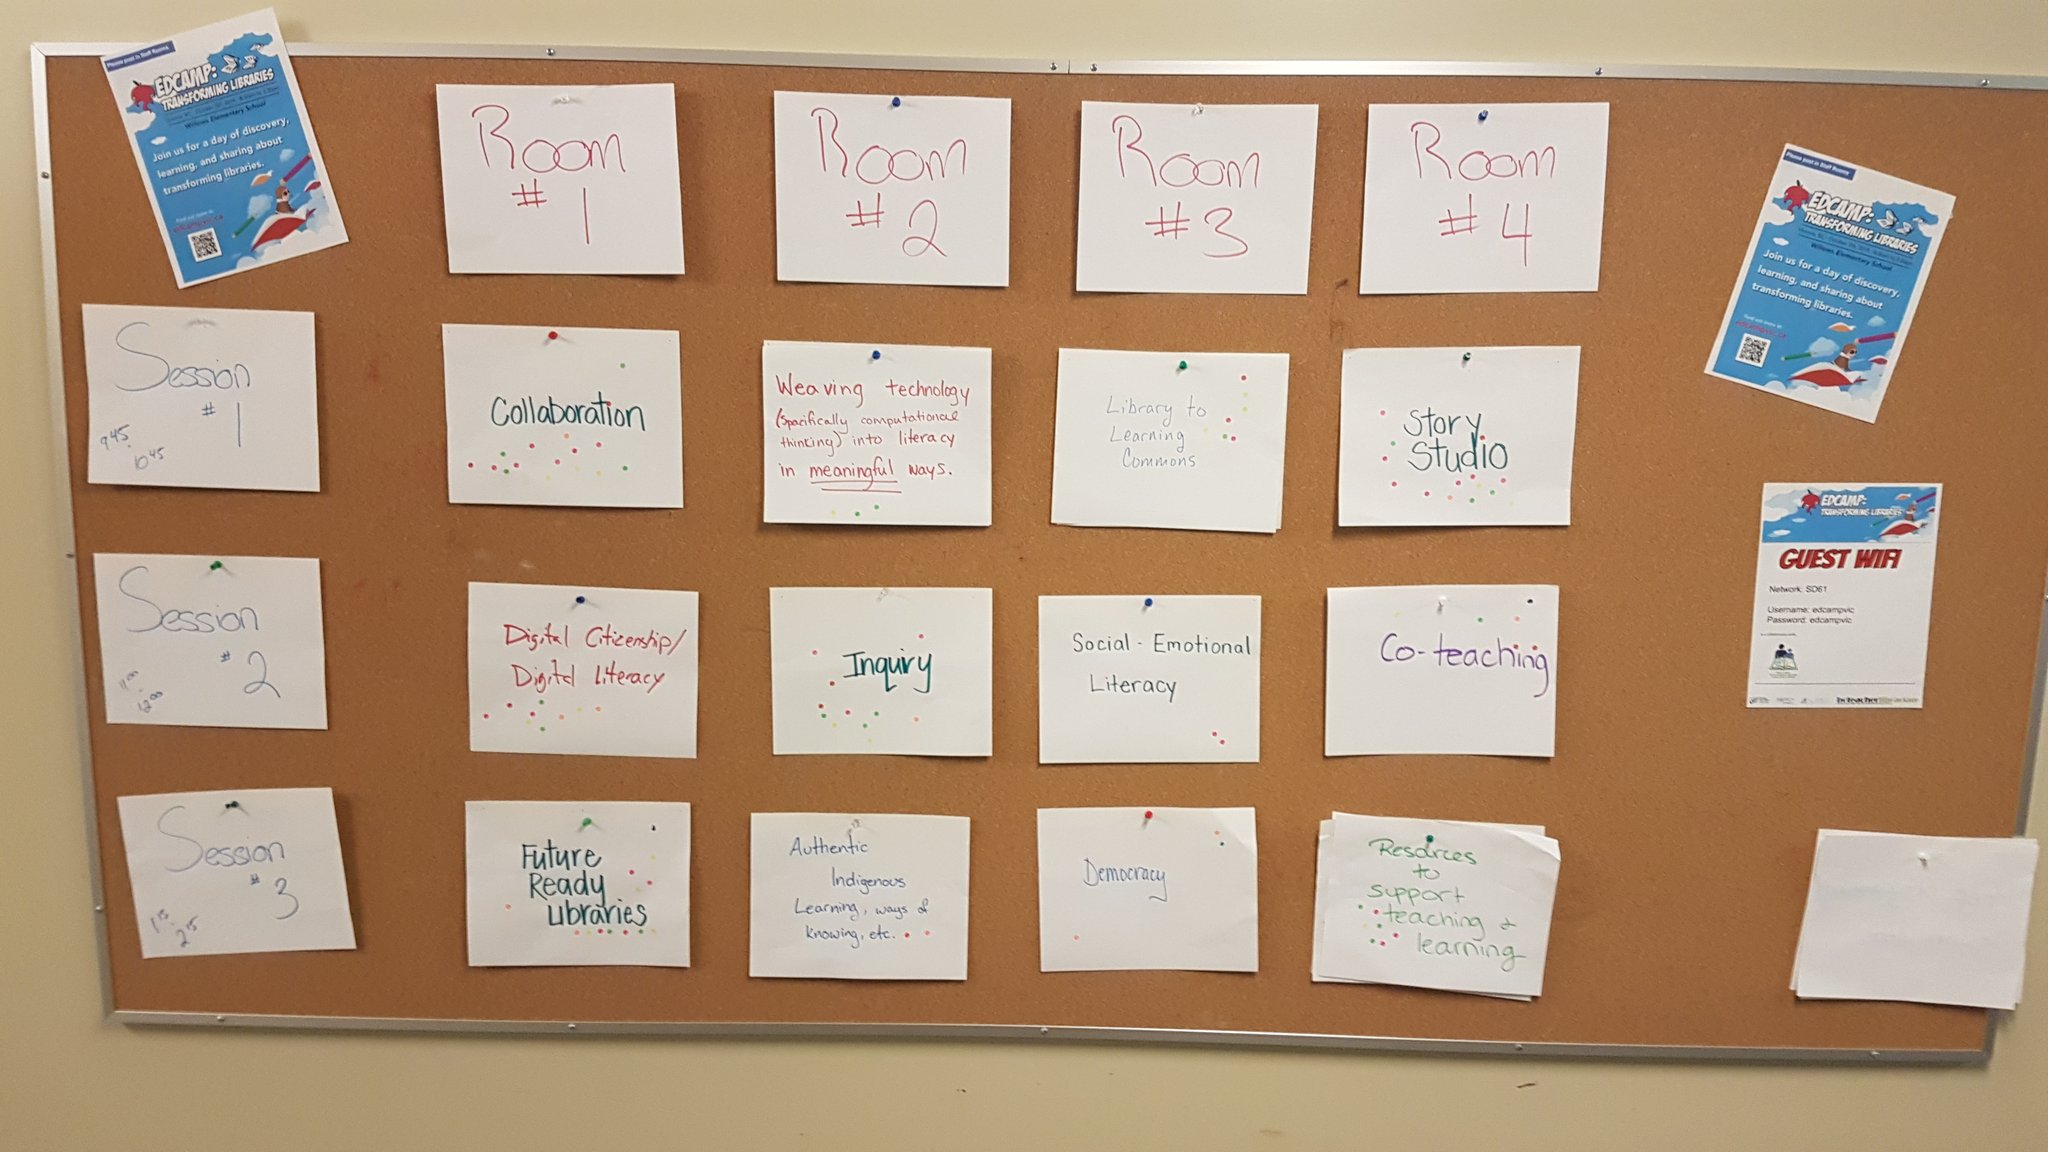 Please post in Staff Rooms
EDCAMP:
TRANSFORMING LIBRARIES
Willows Elementary School
Join us for a day of discovery,
learning, and sharing about
transforming libraries.
edcampvic.ca
Room
# 1
Room
# 2
Room
# 3
Room
# 4
Please post in Staff Rooms
EDCAMP:
TRANSFORMING LIBRARIES
Willows Elementary School
Join us for a day of discovery,
learning, and sharing about
transforming libraries.
edcampvic.ca
Session
# 1
9 45 -
10 45
Collaboration
Weaving technology
(specifically computational
thinking) into literacy
in meaningful ways.
Library to
Learning
Commons
Story
Studio
Session
# 2
11 00 -
12 00
Digital Citizenship/
Digital Literacy
Inquiry
Social - Emotional
Literacy
Co-teaching
EDCAMP:
TRANSFORMING LIBRARIES
GUEST WIFI
Network: SD61
Username: edcampvic
Password: edcampvic
Session
# 3
1 15 -
2 15
Future
Ready
Libraries
Authentic
Indigenous
Learning, ways of
knowing, etc.
Democracy
Resources
to
support
teaching +
learning